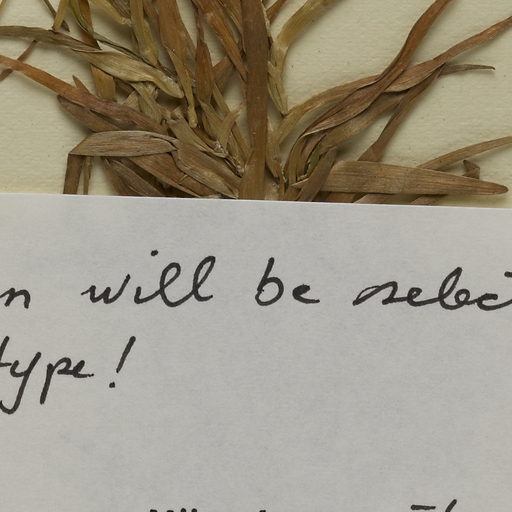 n will be selec
type!